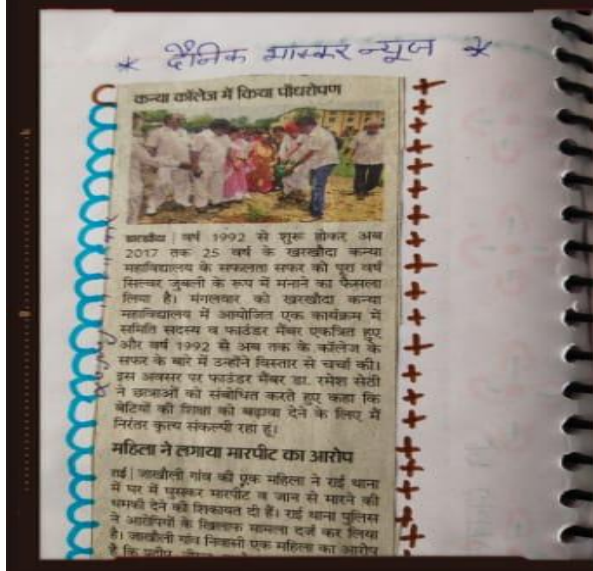 * दैनिक भास्कर न्यूज *
कन्या कॉलेज में किया पौधरोपण
खरखौदा | वर्ष 1992 से शुरू होकर अब
2017 तक 25 वर्ष के खरखौदा कन्या
महाविद्यालय के सफलता सफर को पूरा वर्ष
सिल्वर जुबली के रूप में मनाने का फैसला
लिया है। मंगलवार को खरखौदा कन्या
महाविद्यालय में आयोजित एक कार्यक्रम में
समिति सदस्य व फाउंडर मेंबर एकत्रित हुए
और वर्ष 1992 से अब तक के कॉलेज के
सफर के बारे में उन्होंने विस्तार से चर्चा की।
इस अवसर पर फाउंडर मेंबर डा. रमेश सेठी
ने छात्राओं को संबोधित करते हुए कहा कि
बेटियों की शिक्षा को बढ़ावा देने के लिए मैं
निरंतर कृत्य संकल्पी रहा हूं।
महिला ने लगाया मारपीट का आरोप
राई | जाखौली गांव की एक महिला ने राई थाना
में घर में घुसकर मारपीट व जान से मारने की
धमकी देने की शिकायत दी हैं। राई थाना पुलिस
ने आरोपियों के खिलाफ मामला दर्ज कर लिया
है। जाखौली गांव निवासी एक महिला का आरोप
है कि